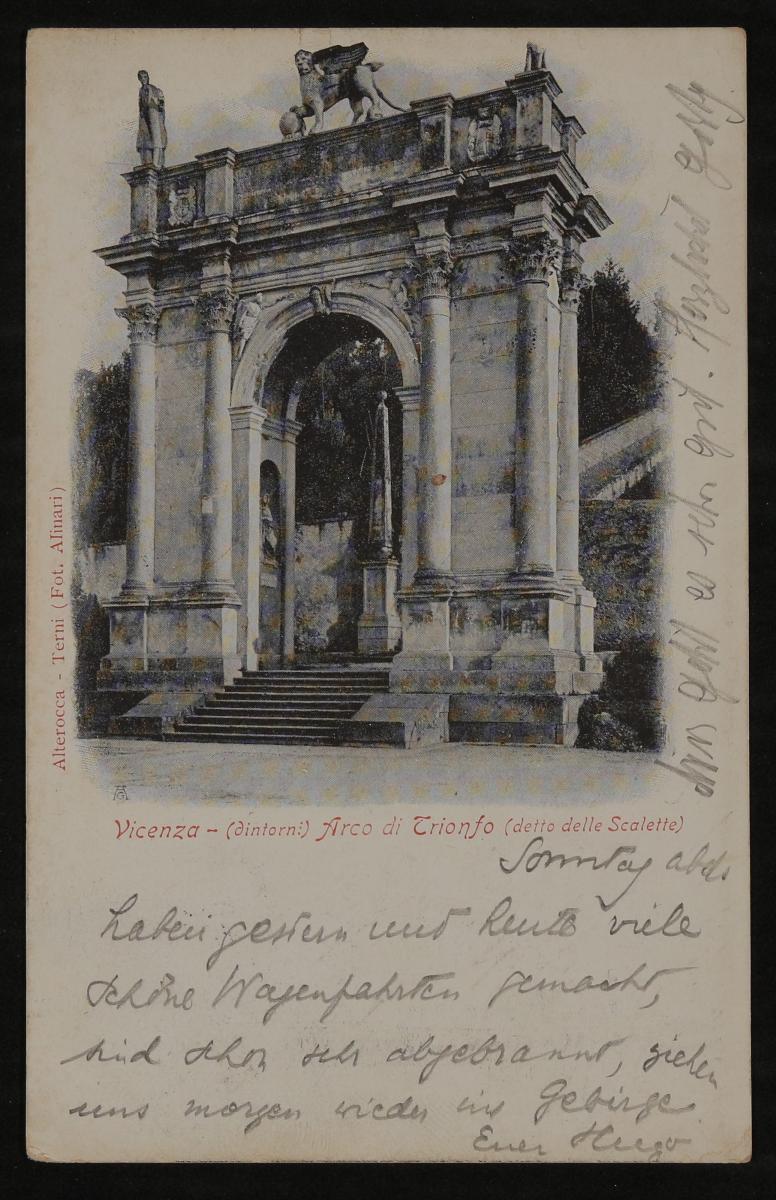 Alterocca - Terni (Fot. Alinari)
Vicenza - (dintorni) Arco di Trionfo (detto delle Scalette)
Sonntag abds
haben gestern und heute viele
schöne Wagenfahrten gemacht,
sind schon sehr abgebrannt, ziehen
uns morgen wieder ins Gebirge
Euer Hugo
Uns geht es sehr gut. Herzlichst Gerty